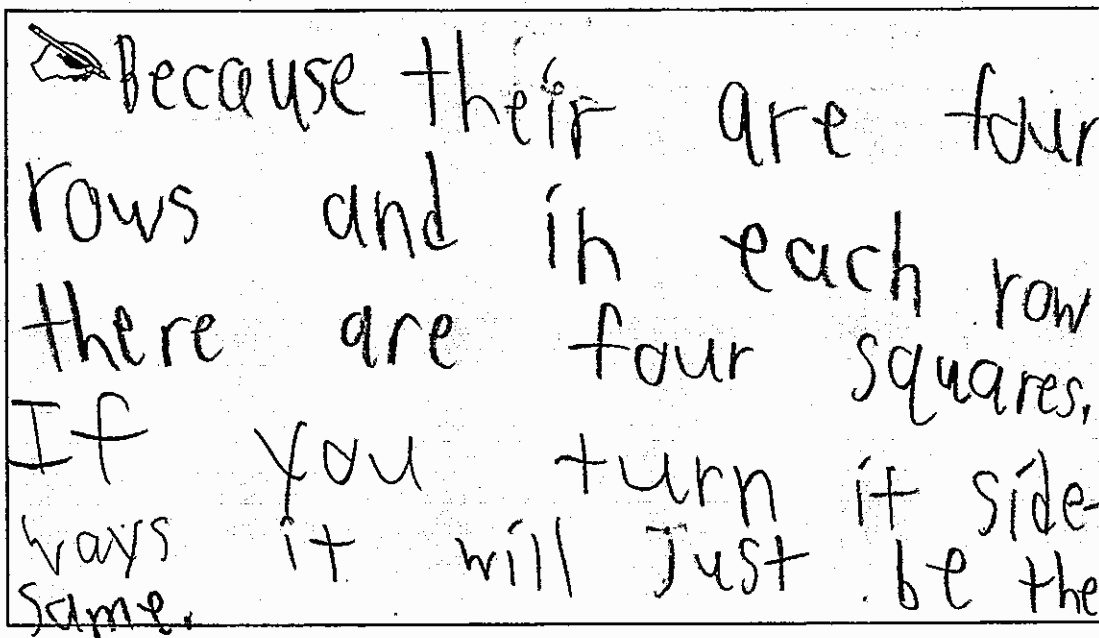 Because their are four
rows and in each row
there are four squares.
If you turn it side-
ways it will just be the
same.